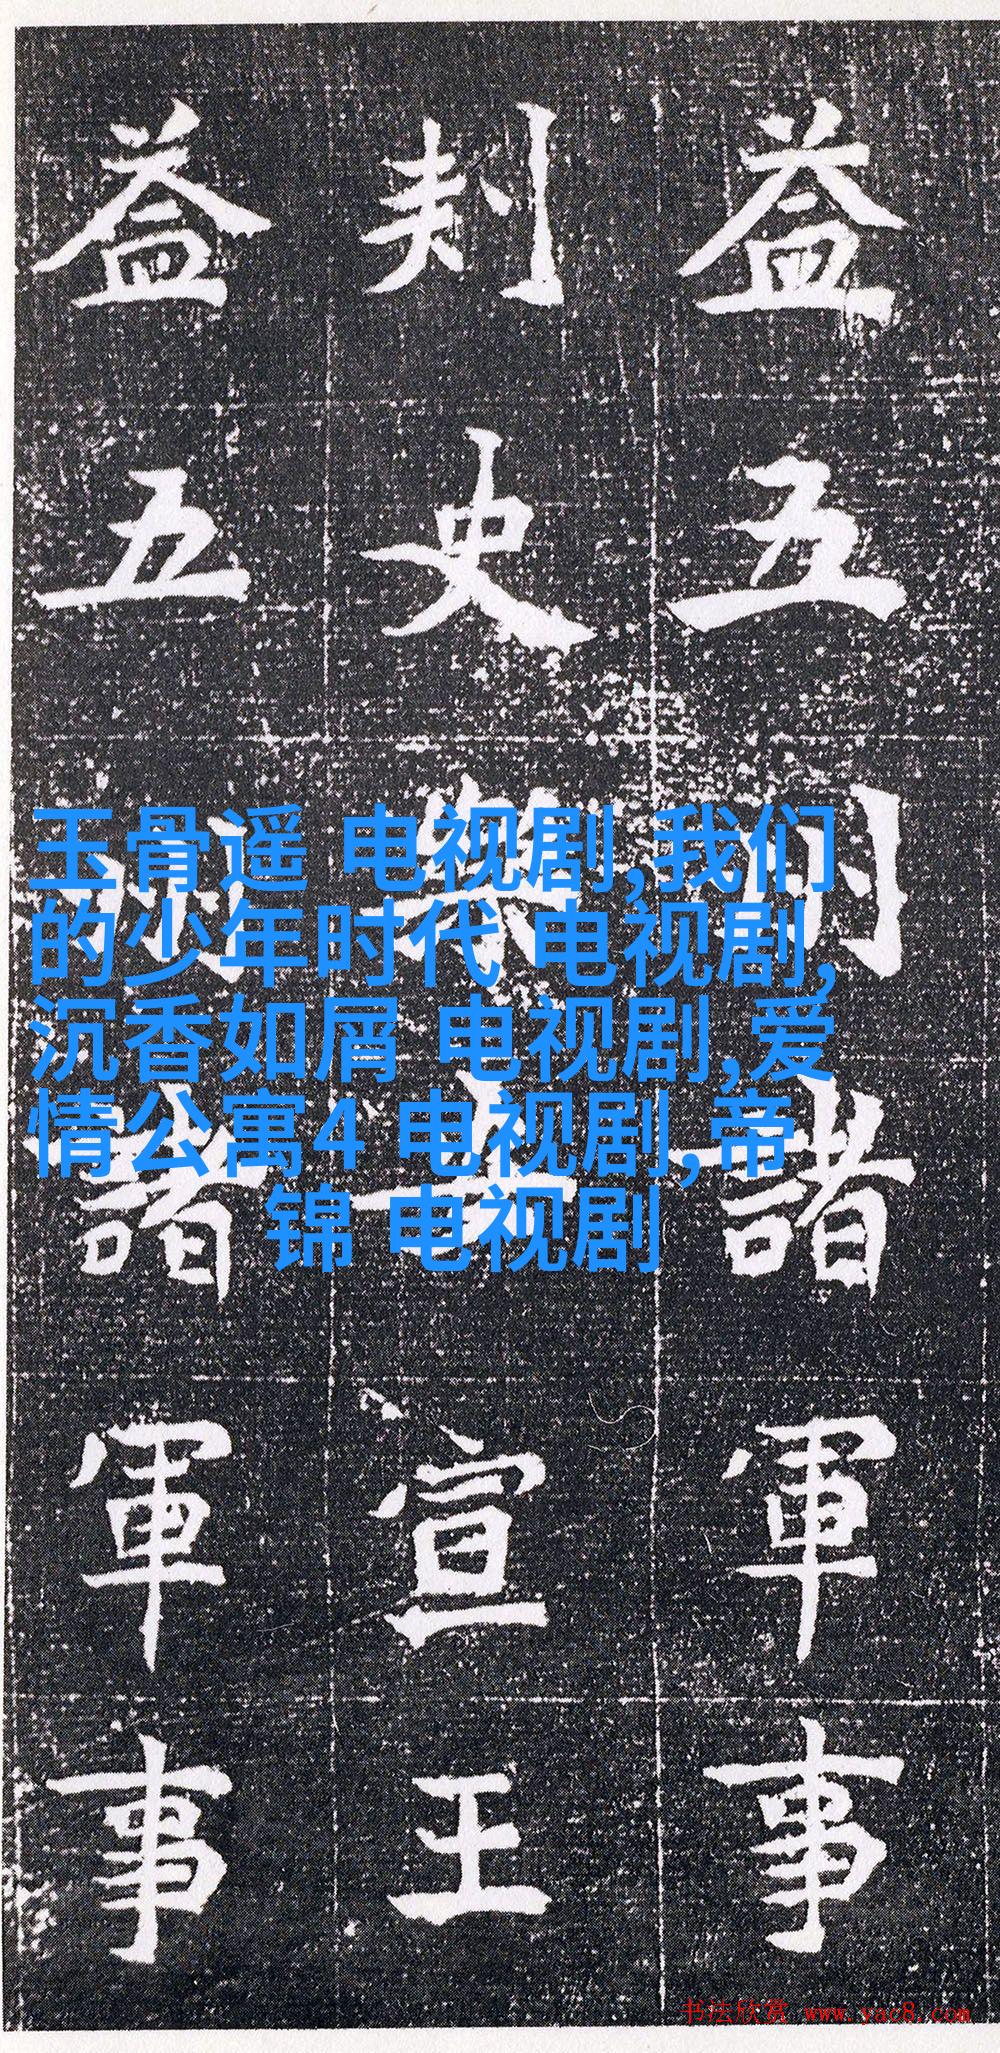 益五州諸軍事
刾史樂安宣王
益五州諸軍事
玉骨遥 电视剧,我们
的少年时代 电视剧,
沉香如屑 电视剧,爱
情公寓4 电视剧,帝
锦 电视剧
书法欣赏 www.yac8.com